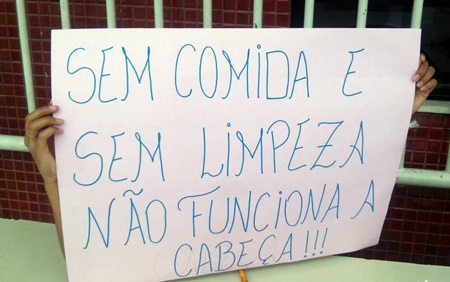 SEM COMIDA E
SEM LIMPEZA
NÃO FUNCIONA A
CABEÇA!!!